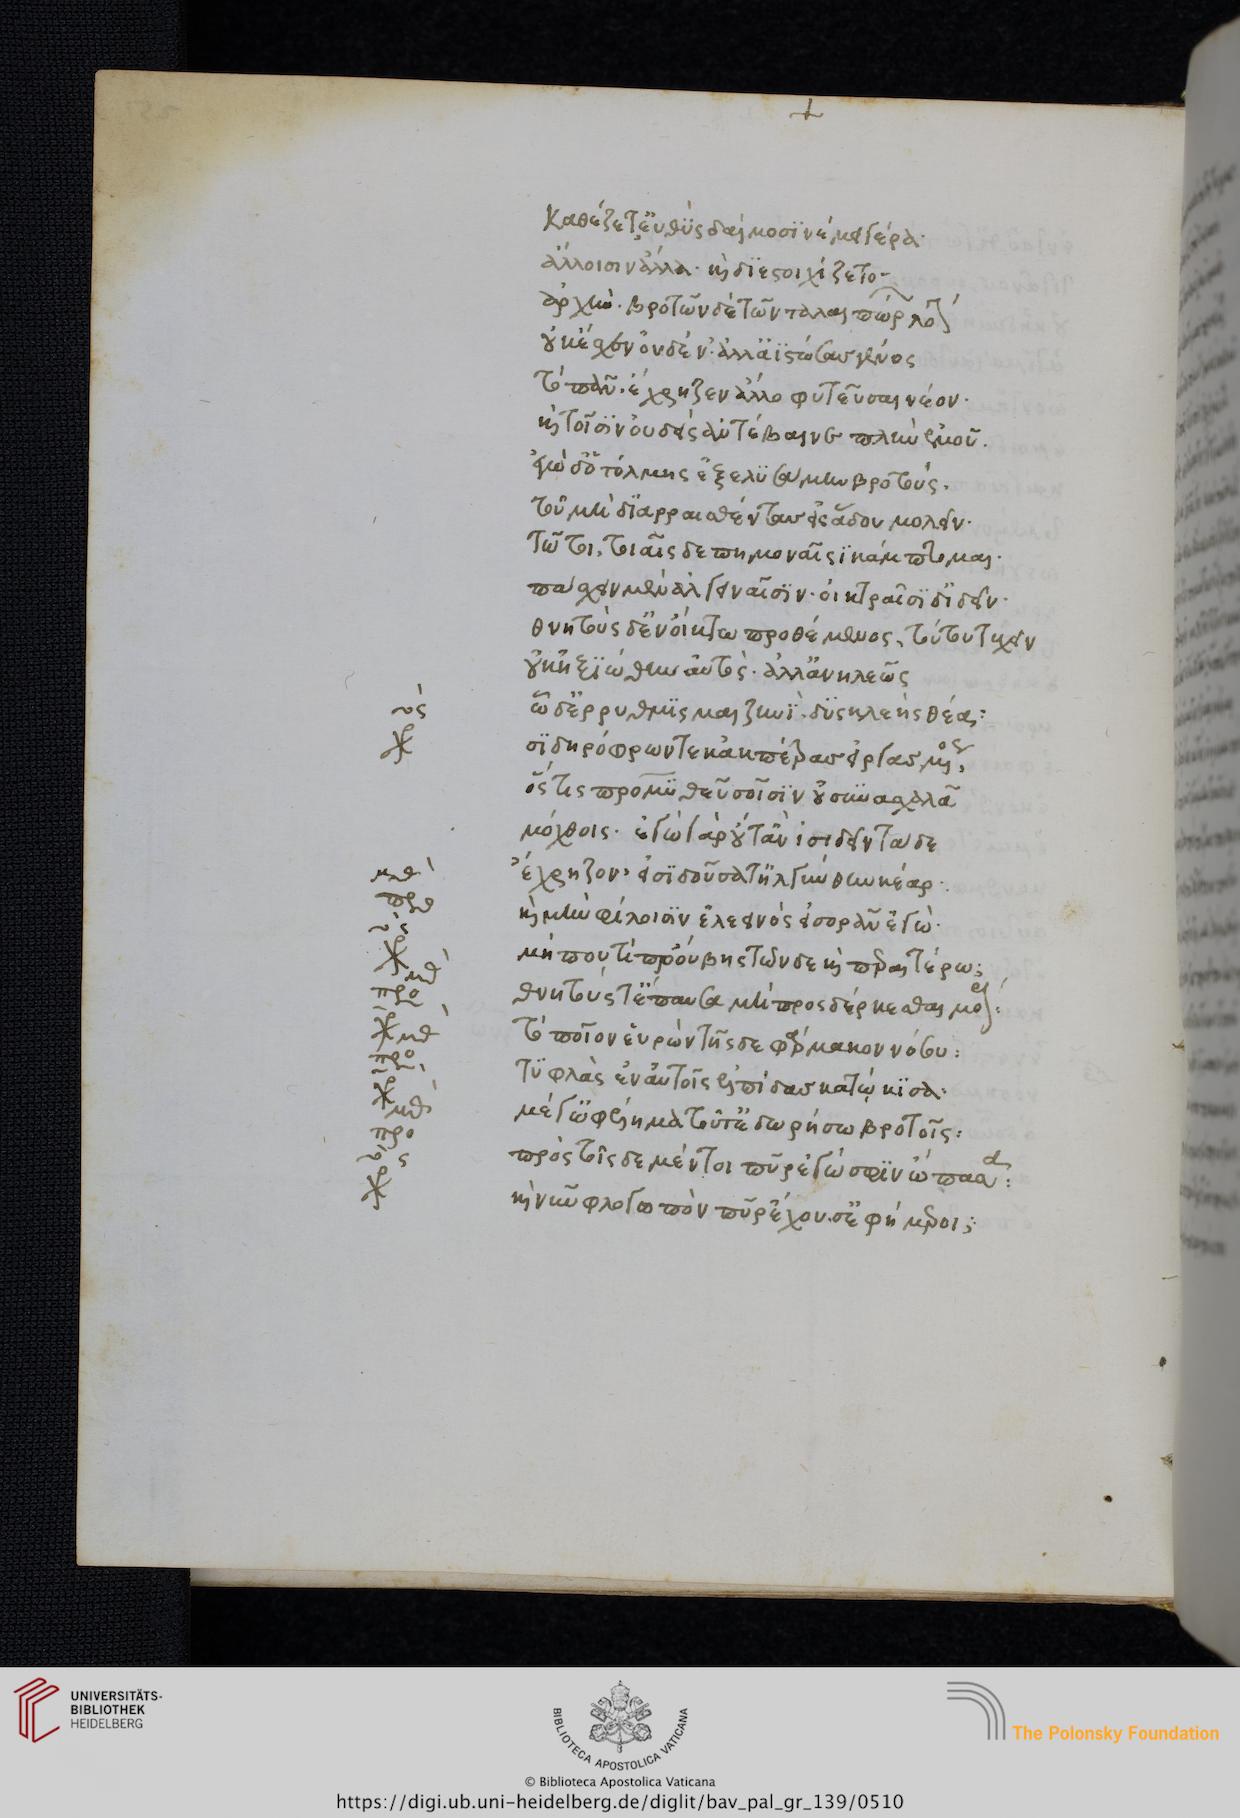 καθέζετ' εὐθὺς δαίμοσιν νέμει γέρα
ἄλλοισιν ἄλλα· καὶ διεστοιχίζετο
ἀρχήν· βροτῶν δὲ τῶν ταλαιπώρων λόγον
οὐκ ἔσχεν οὐδέν'· ἀλλ' ἀϊστώσας γένος
τὸ πᾶν· ἔχρηζεν ἄλλο φυτεῦσαι νέον·
καὶ τοῖσιν οὐδεὶς ἀντέβαινε πλὴν ἐμοῦ.
ἐγὼ δ' ὁ τόλμης ἐξελυσάμην βροτούς.
τοῦ μὴ διαρραισθέντας εἰς ᾅδου μολεῖν·
τῷ τοι, τοιαῖσδε πημοναῖσι κάμπτομαι·
πάσχειν μὲν ἀλγειναῖσιν· οἰκτραῖσι δ' ἰδεῖν·
θνητοὺς δ' ἐν οἴκτω προθέμενος, τούτου τυχεῖν
οὐκ ἠξιώθην αὐτός· ἀλλ' ἀνηλεῶς
ὧδ' ἐρρύθμισμαι ζηνὶ· δυσκλεὴς θέα:
σιδηρόφρων τε κἀκ πέτρας εἰργασμένος,
ὅστις προμηθεῦ σοῖσιν οὐ συνασχαλᾶ
μόχθοις· ἐγὼ γὰρ οὔτ' ἂν εἰσιδεῖν τάδε
ἔχρηζον, εἰσιδοῦσά τ' ἠλγύνθην κέαρ·
καὶ μὴν φίλοισιν ἐλεεινὸς εἰσορᾶν ἐγώ·
μή πού τι προὔβης τῶνδε καὶ περαιτέρω;
θνητούς τ' ἔπαυσα μὴ προσδέρκεσθαι μόρον:
τὸ ποῖον εὑρὼν τῆσδε φάρμακον νόσου:
τυφλὰς ἐν αὐτοῖς ἐλπίδας κατῴκισα·
μέγ' ὠφέλημα τοῦτ' ἐδωρήσω βροτοῖς:
πρὸς τοῖσδε μέντοι πῦρ ἐγώ σφιν ὤπασα:
καὶ νῦν φλογωπὸν πῦρ ἔχουσ' ἐφήμεροι;
UNIVERSITÄTS-
BIBLIOTHEK
HEIDELBERG
BIBLIOTECA APOSTOLICA VATICANA
The Polonsky Foundation
© Biblioteca Apostolica Vaticana
https://digi.ub.uni-heidelberg.de/diglit/bav_pal_gr_139/0510